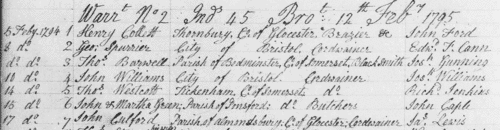 Warrt No 2 Ind 45 Brot 12th Feby 1795
5 Feby 1794 1 Henry Collett Thornbury, Co of Glocester Brazier & John Ford
8 do 2 Geo: Spurrier City of Bristol Cordwainer Edwd T. Cann
do do 3 Thos Barwell Parish of Bedminster, Co of Somerset, Black Smith Jos: Gunning
10 do 4 John Williams City of Bristol Cordwainer Jos: Williams
14 do 5 Thos Westcott Tickenham, Co of Somerset do Richd Jenkins
15 do 6 John & Martha Green; Parish of Butchers John Caple
17 do 7 John Parish of almondsbury, Co of Glocester; Cordwainer Jas Lewis